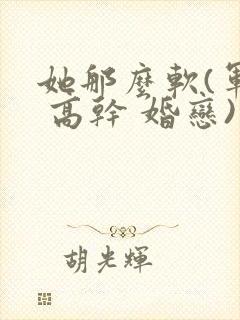 她那麼軟(軍
高幹 婚戀)
胡光輝